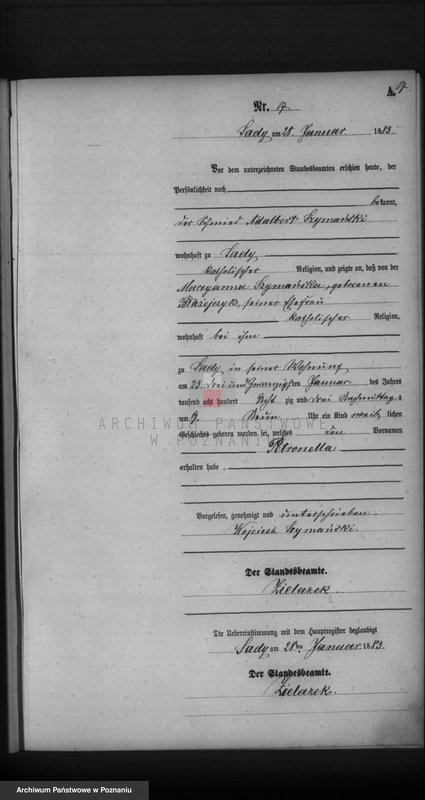 17
A.
Nr. 17.
Sady am 28. Januar 1883.
Vor dem unterzeichneten Standesbeamten erschien heute, der
Persönlichkeit nach
bekannt,
der Schmied Adalbert Szymański
wohnhaft zu Sady
katholischer Religion, und zeigte an, daß von der
Maryanna Szymańska, geborenen
seiner Ehefrau
katholischer Religion,
wohnhaft bei ihm
zu Sady in seiner Wohnung
am 23. drei und zwanzigsten Januar des Jahres
tausend acht hundert Acht zig und drei Nachmittags
um 9. Neun Uhr ein Kind weib lichen
Geschlechts geboren worden sei, welches den Vornamen
Petronella
erhalten habe.
Vorgelesen, genehmigt und unterschrieben.
Wojciech Szymański.
Der Standesbeamte.
Zielazek.
Die Uebereinstimmung mit dem Hauptregister beglaubigt
Sady am 28ten Januar 1883.
Der Standesbeamte.
Zielazek.
ARCHIWUM PAŃSTWOWE
W POZNANIU
Archiwum Państwowe w Poznaniu